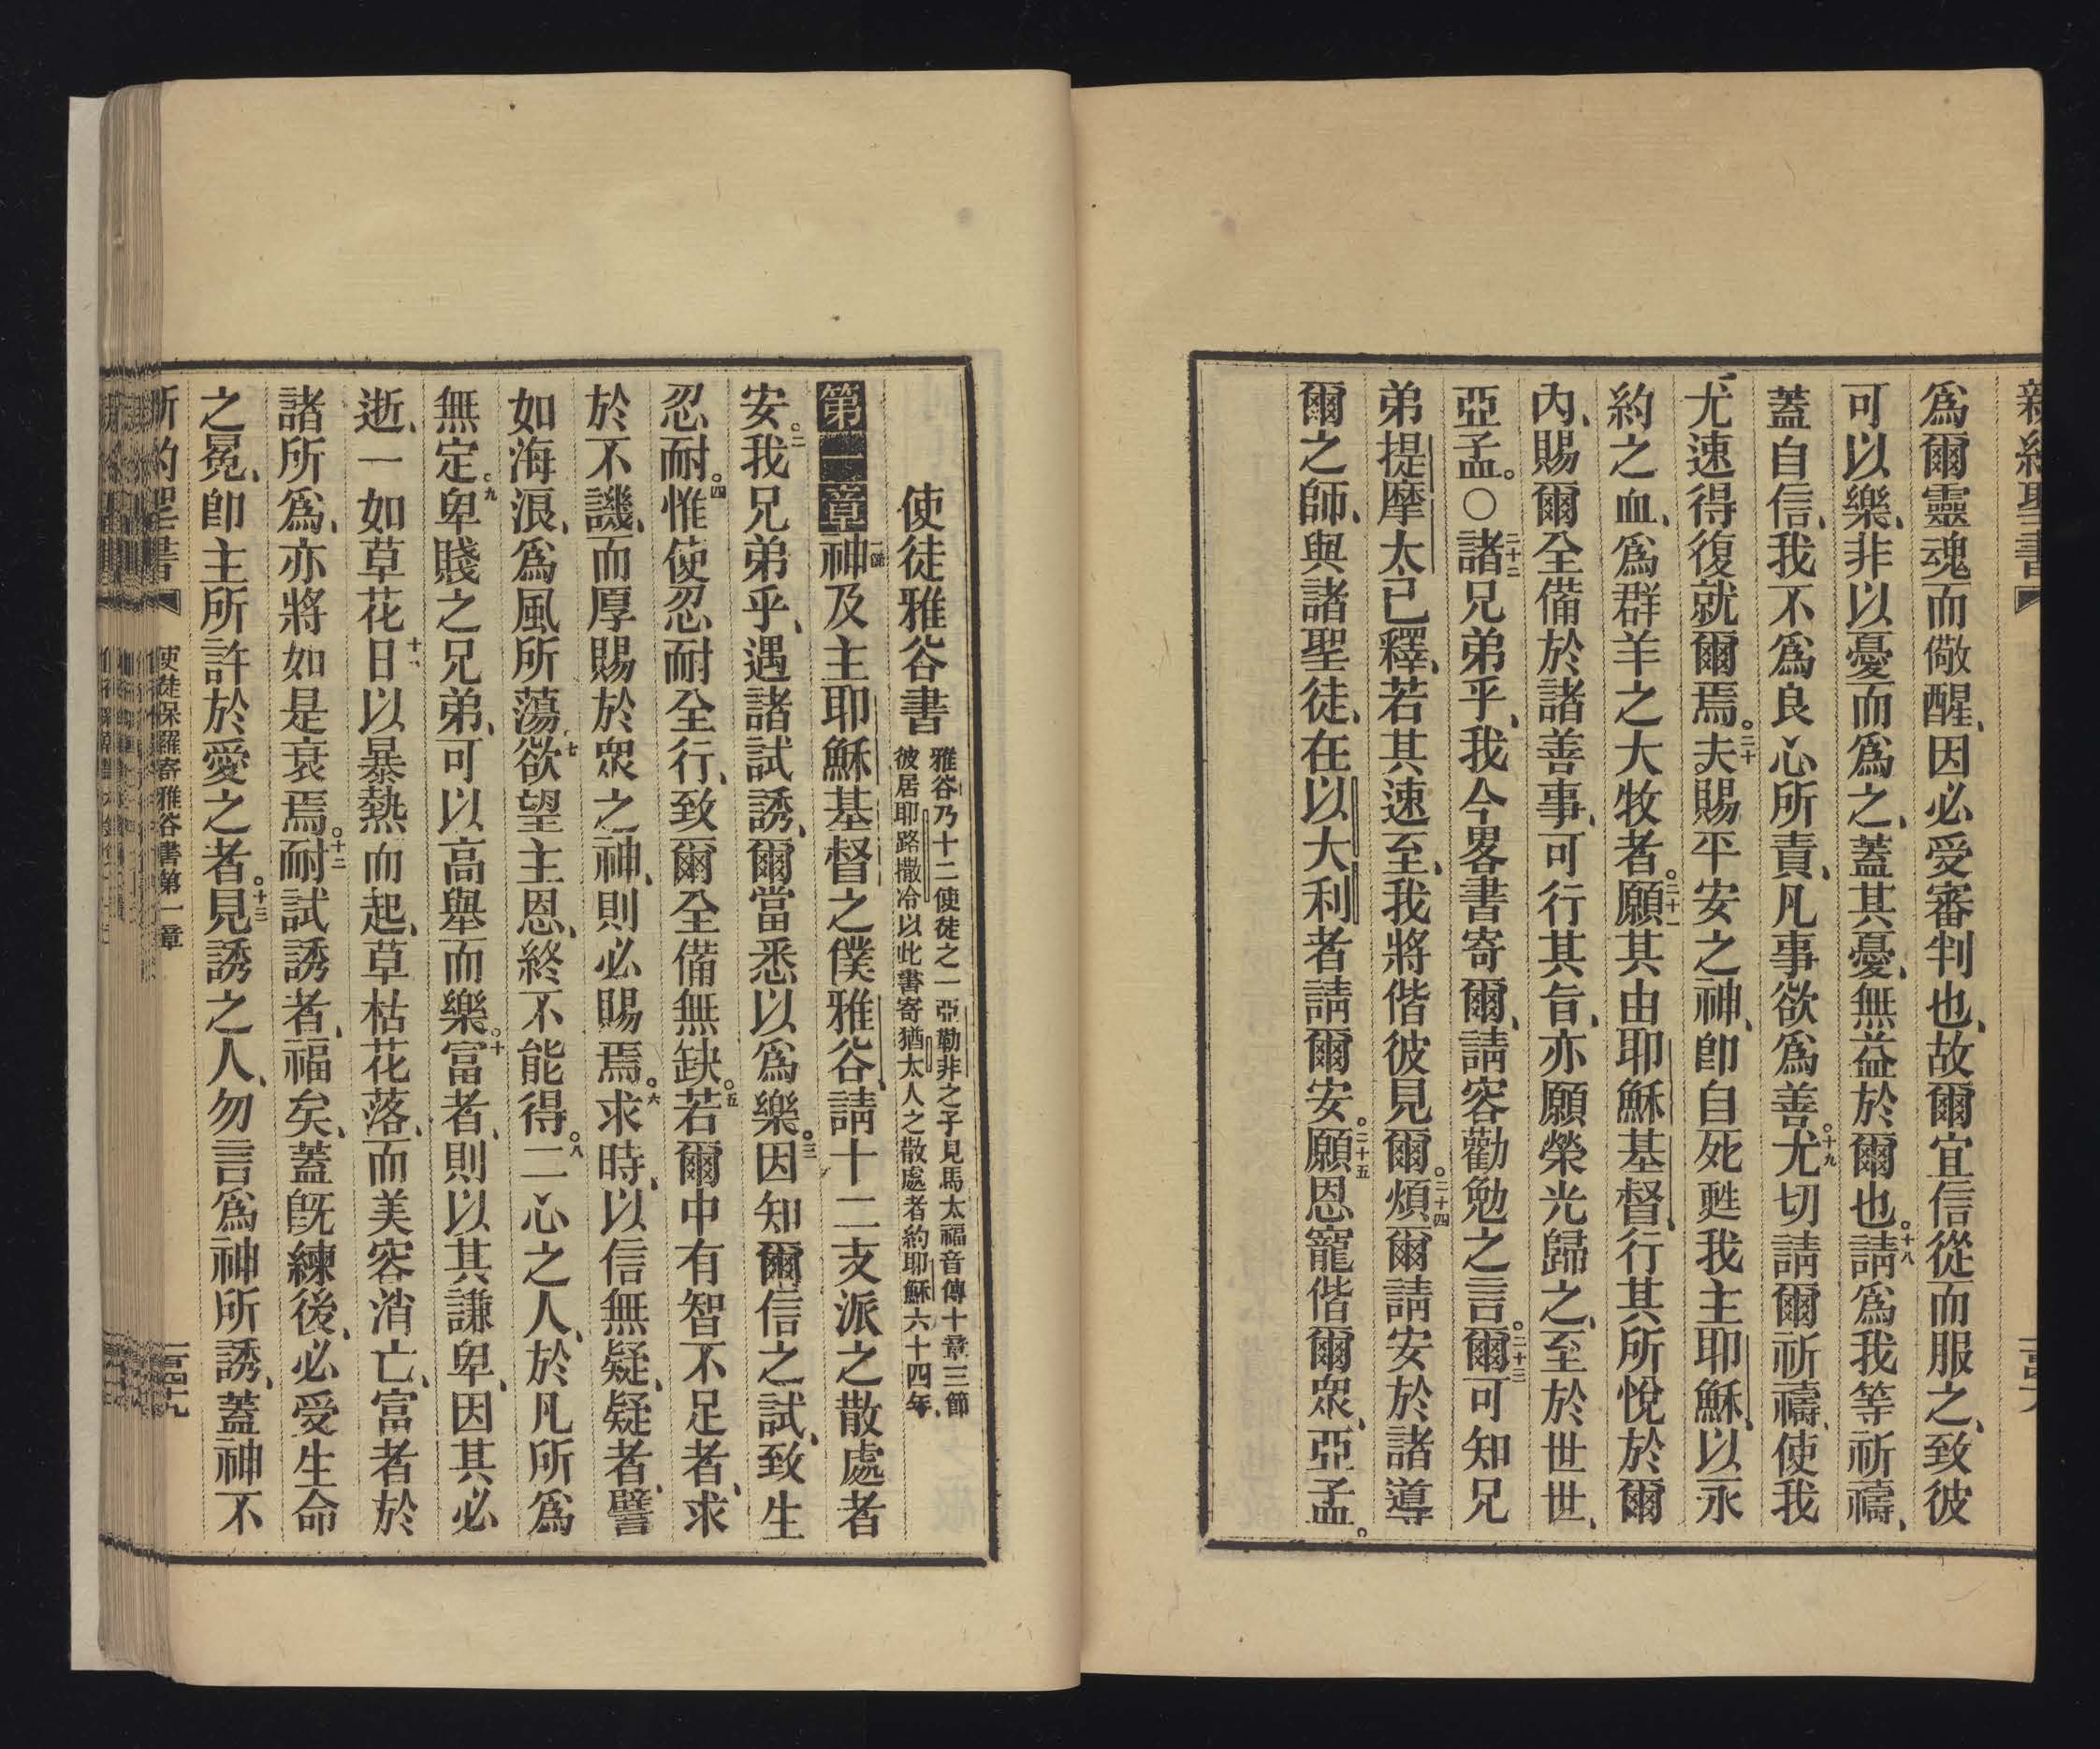 新約聖書
爲爾靈魂而儆醒、因必受審判也、故爾宜信從而服之、致彼
可以樂、非以憂而爲之、蓋其憂、無益於爾也。十八請爲我等祈禱、
蓋自信、我不爲良心所責、凡事欲爲善。十九尤切請爾祈禱、使我
尤速得復就爾焉。二十夫賜平安之神、卽自死甦我主耶穌、以永
約之血、爲群羊之大牧者。二十一願其由耶穌基督、行其所悅於爾
內、賜爾全備於諸善事、可行其旨、亦願榮光歸之、至於世世、
亞孟。○二十二諸兄弟乎、我今畧書寄爾、請容勸勉之言。二十三爾可知兄
弟提摩太已釋、若其速至、我將偕彼見爾。二十四煩爾請安於諸導
爾之師、與諸聖徒、在以大利者請爾安。二十五願恩寵偕爾眾、亞孟。
使徒雅谷書
雅谷乃十二使徒之一亞勒非之子見馬太福音傳十章三節
彼居耶路撒冷以此書寄猶太人之散處者約耶穌六十四年、
第一章一節神及主耶穌基督之僕雅谷、請十二支派之散處者
安。二我兄弟乎、遇諸試誘、爾當悉以爲樂。三因知爾信之試、致生
忍耐。四惟使忍耐全行、致爾全備無缺。五若爾中有智不足者、求
於不譏、而厚賜於眾之神、則必賜焉。六求時、以信無疑、疑者、譬
如海浪、爲風所蕩、七欲望主恩、終不能得。八二心之人、於凡所爲
無定。九卑賤之兄弟、可以高舉而樂。十富者、則以其謙卑、因其必
逝、一如草花、十一日以暴熱而起、草枯花落、而美容消亡、富者於
諸所爲、亦將如是衰焉。十二耐試誘者、福矣、蓋旣練後、必受生命
之冕、卽主所許於愛之者。十三見誘之人、勿言爲神所誘、蓋神不
新約聖書 使徒保羅寄雅谷書第一章